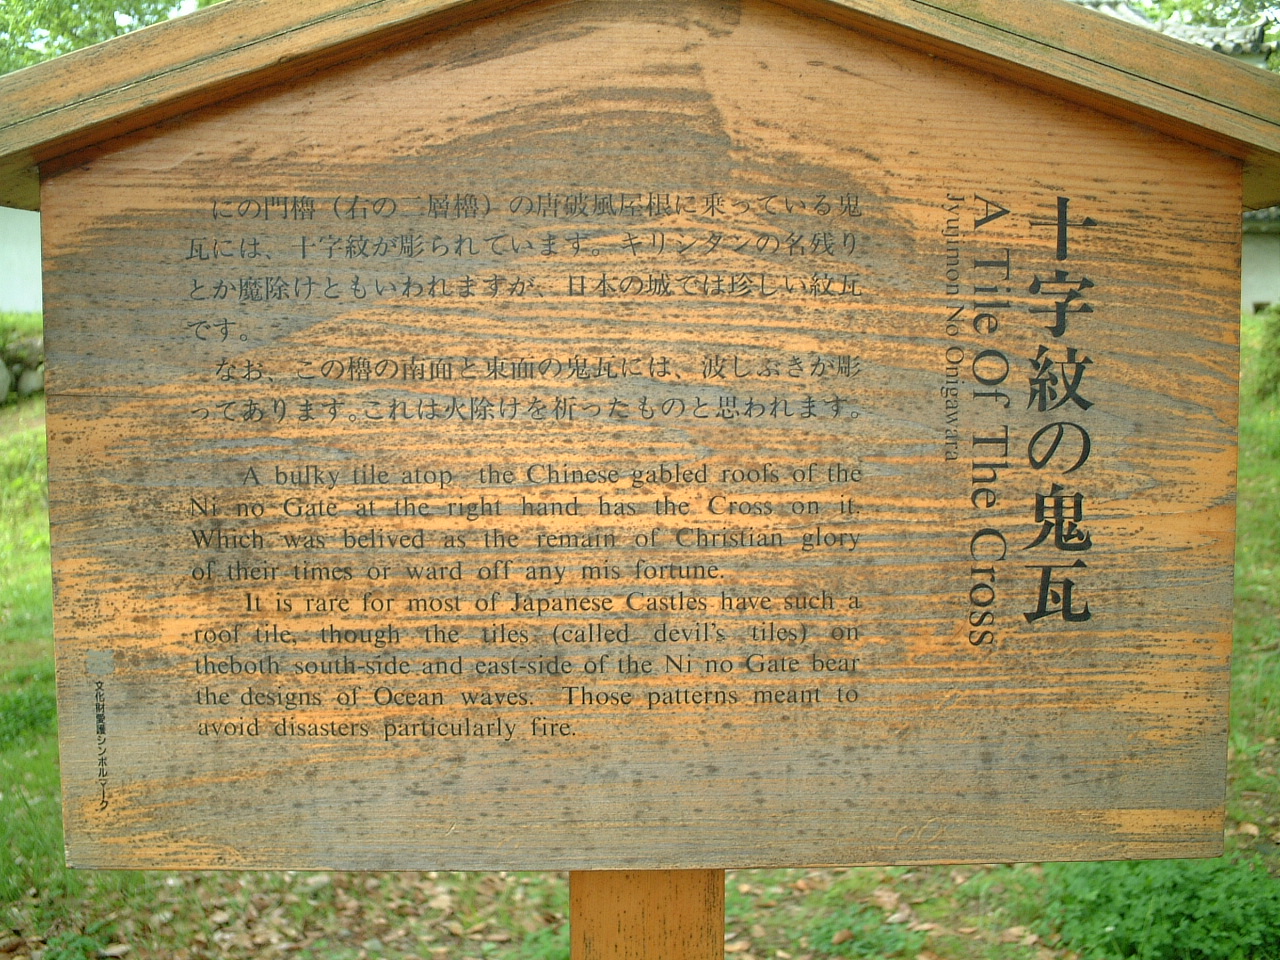 十字紋の鬼瓦
A Tile Of The Cross
Jyuumon No Onigawara
にの門櫓（右の二層櫓）の唐破風屋根に乗っている鬼
瓦には、十字紋が彫られています。キリシタンの名残り
とか魔除けともいわれますが、日本の城では珍しい紋瓦
です。
なお、この櫓の南面と東面の鬼瓦には、波しぶきが彫
ってあります。これは火除けを祈ったものと思われます。
A bulky tile atop the Chinese gabled roofs of the
Ni no Gate at the right hand has the Cross on it.
Which was belived as the remain of Christian glory
of their times or ward off any mis fortune.
It is rare for most of Japanese Castles have such a
roof tile, though the tiles (called devil's tiles) on
theboth south-side and east-side of the Ni no Gate bear
the designs of Ocean waves. Those patterns meant to
avoid disasters particularly fire.
文化財愛護シンボルマーク